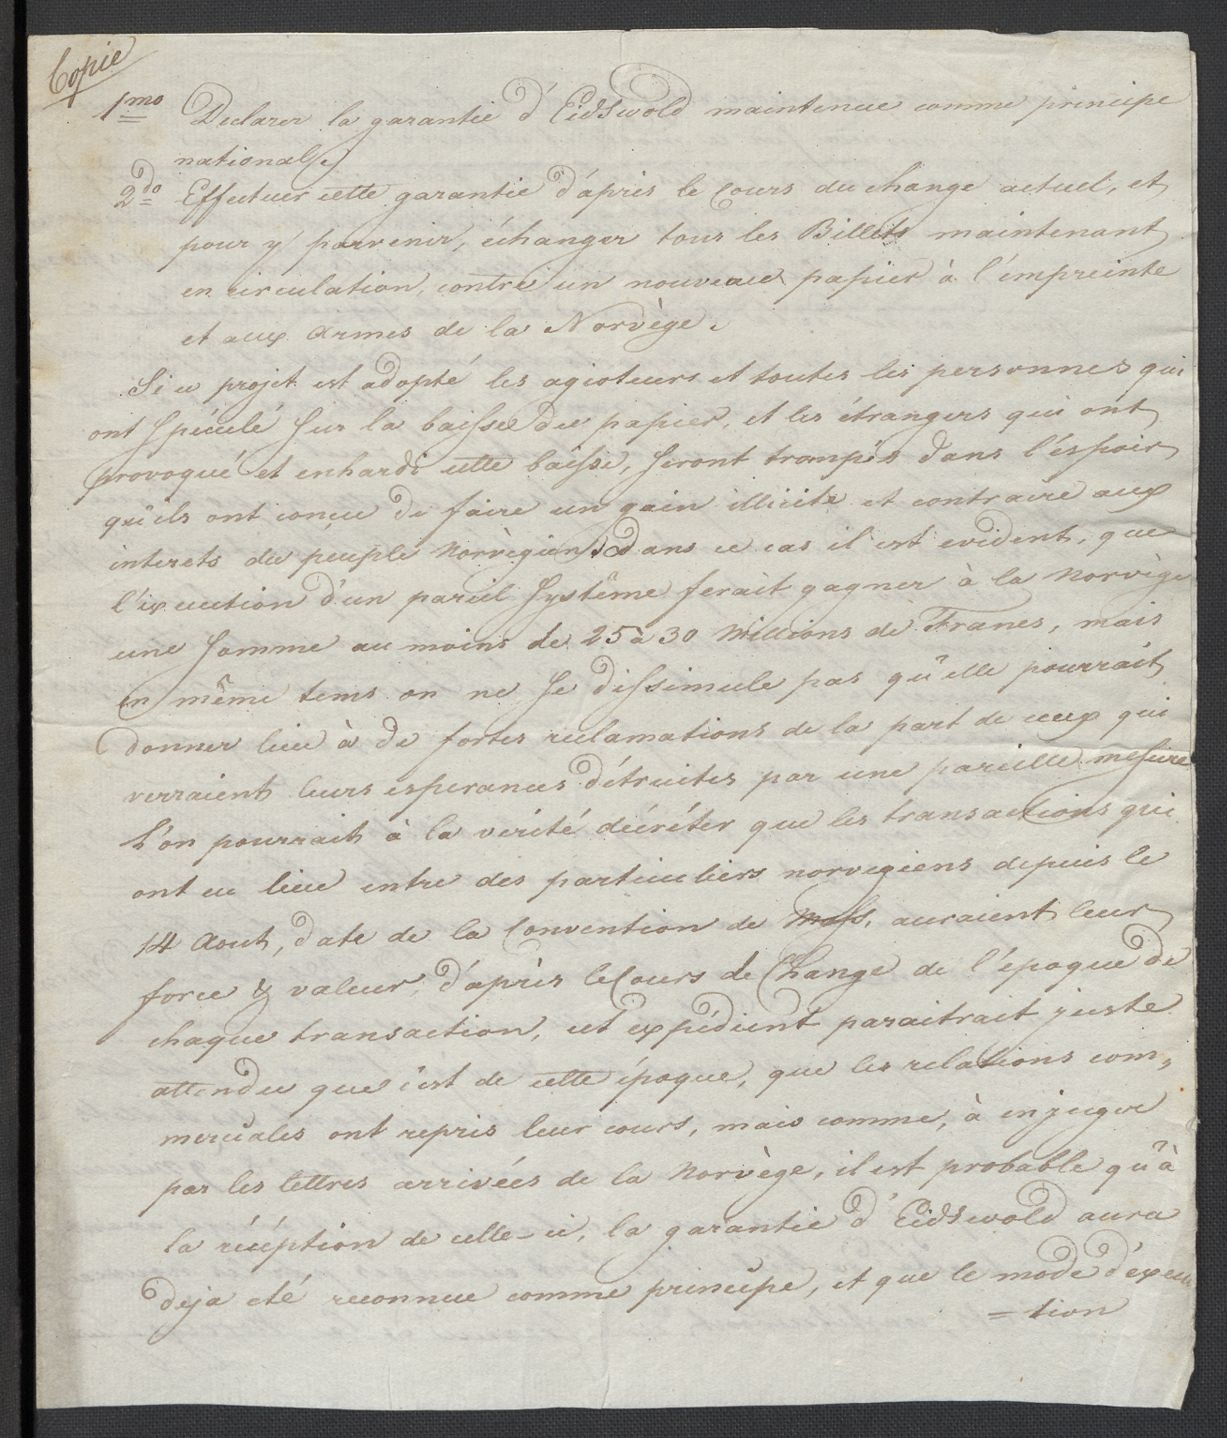 Copie
1mo Declarer la garantie d'Eidswold maintenue comme principe
nationale
2do Effectuer cette garantie d'après le Cours du change actuel, et
pour y parvenir, échanger tous les Billets maintenant
en circulation, contre un nouveau papier à l'empreinte
et aux armes de la Norvège.
Si ce projet est adopté les agioteurs et toutes les personnes qui
ont spéculé sur la baisse du papier, et les étrangers qui ont
provoqué et enhardi cette baisse, seront trompés dans l'éspoir
qu'ils ont conçu de faire un gain illicite et contraire aux
interets du peuple Norvègien; dans ce cas il est evident, que
l'éxecution d'un pareil Systême ferait gagner à la Norvège
une somme au moins de 25 à 30 Millions de Francs, mais
en même tems on ne se dissimule pas qu'elle pourrait
donner lieu à de fortes reclamations de la part de ceux qui
verraient leurs esperances détruites par une pareille mesure
L'on pourrait à la verité décréter que les transactions qui
ont eu lieu entre des particuliers norvegiens depuis le
14 Aout, date de la Convention de Moss, auraient leur
force & valeur, d'après le Cours de Change de l'époque de
chaque transaction, cet expédient paraitrait juste
attendu que c'est de cette époque, que les relations com,,
merciales ont repris leur cours, mais comme, à en juger
par les lettres arrivées de la Norvège, il est probable qu'à
la récéption de celle-ci, la garantie d'Eidswold aura
deja eté reconnue comme principe, et que le mode d'éxecu
=tion